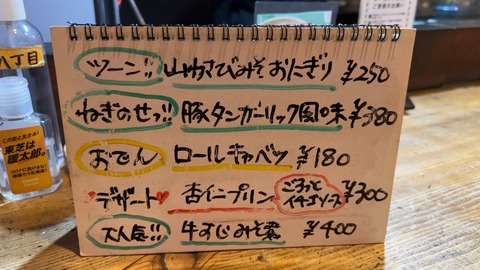 ツーン!! 山わさびみそおにぎり ¥250
ねぎのせっ!! 豚タンガーリック風味 ¥380
おでん ロールキャベツ ¥180
デザート♥ 杏仁プリン ごろっとイチゴソース ¥300
大人気!! 牛すじみそ煮 ¥400
八丁目
この街と生きる!
東芝は
暖太郎。